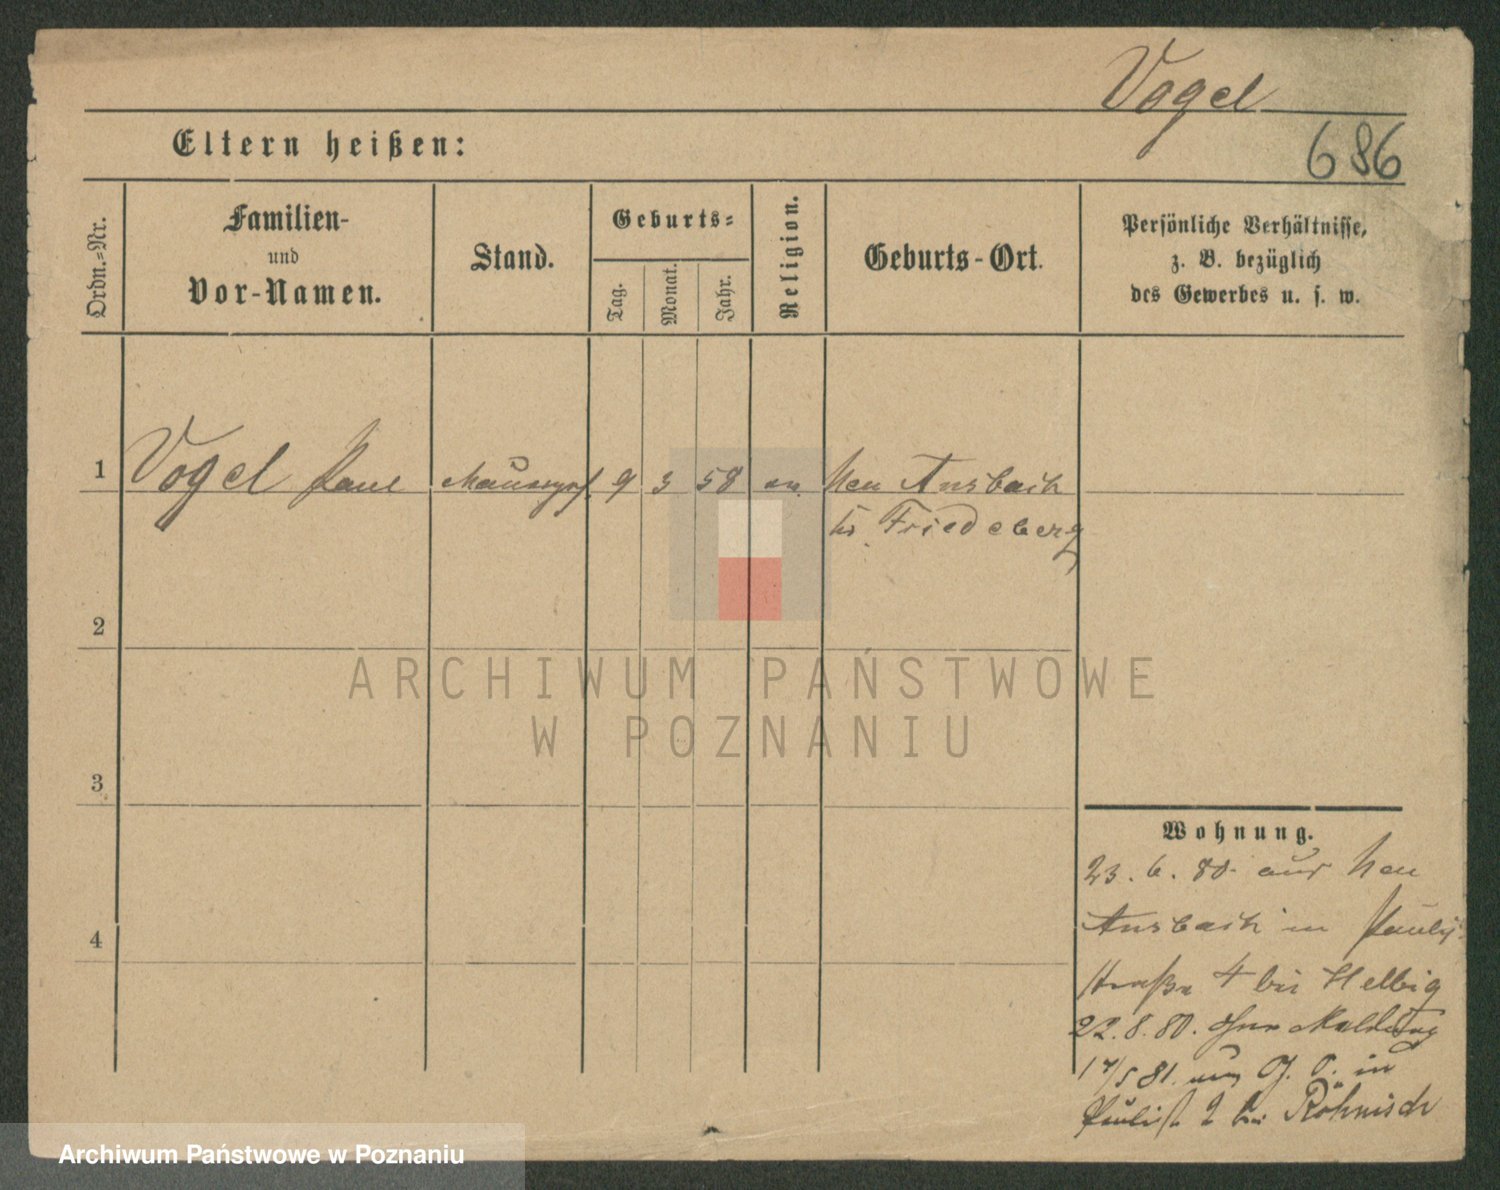 Vogel
686
Eltern heißen:
Ordn.-Nr.
Familien-
und
Vor-Namen.
Stand.
Geburts-
Tag.
Monat.
Jahr.
Religion.
Geburts-Ort.
Persönliche Verhältnisse,
z. B. bezüglich
des Gewerbes u. s. w.
1 Vogel Paul 9 3 58 ev. Neu Ansbach
Kr. Friedeberg
2
3
4
Wohnung.
23. 6. 80. aus Neu
Ansbach in Pauli
straße 4 bei Helbig
22. 8. 80. ohne Meldung
17/5 81. aus G. O. in
Paulist 2 bei Röhnisch
ARCHIWUM PAŃSTWOWE
W POZNANIU
Archiwum Państwowe w Poznaniu